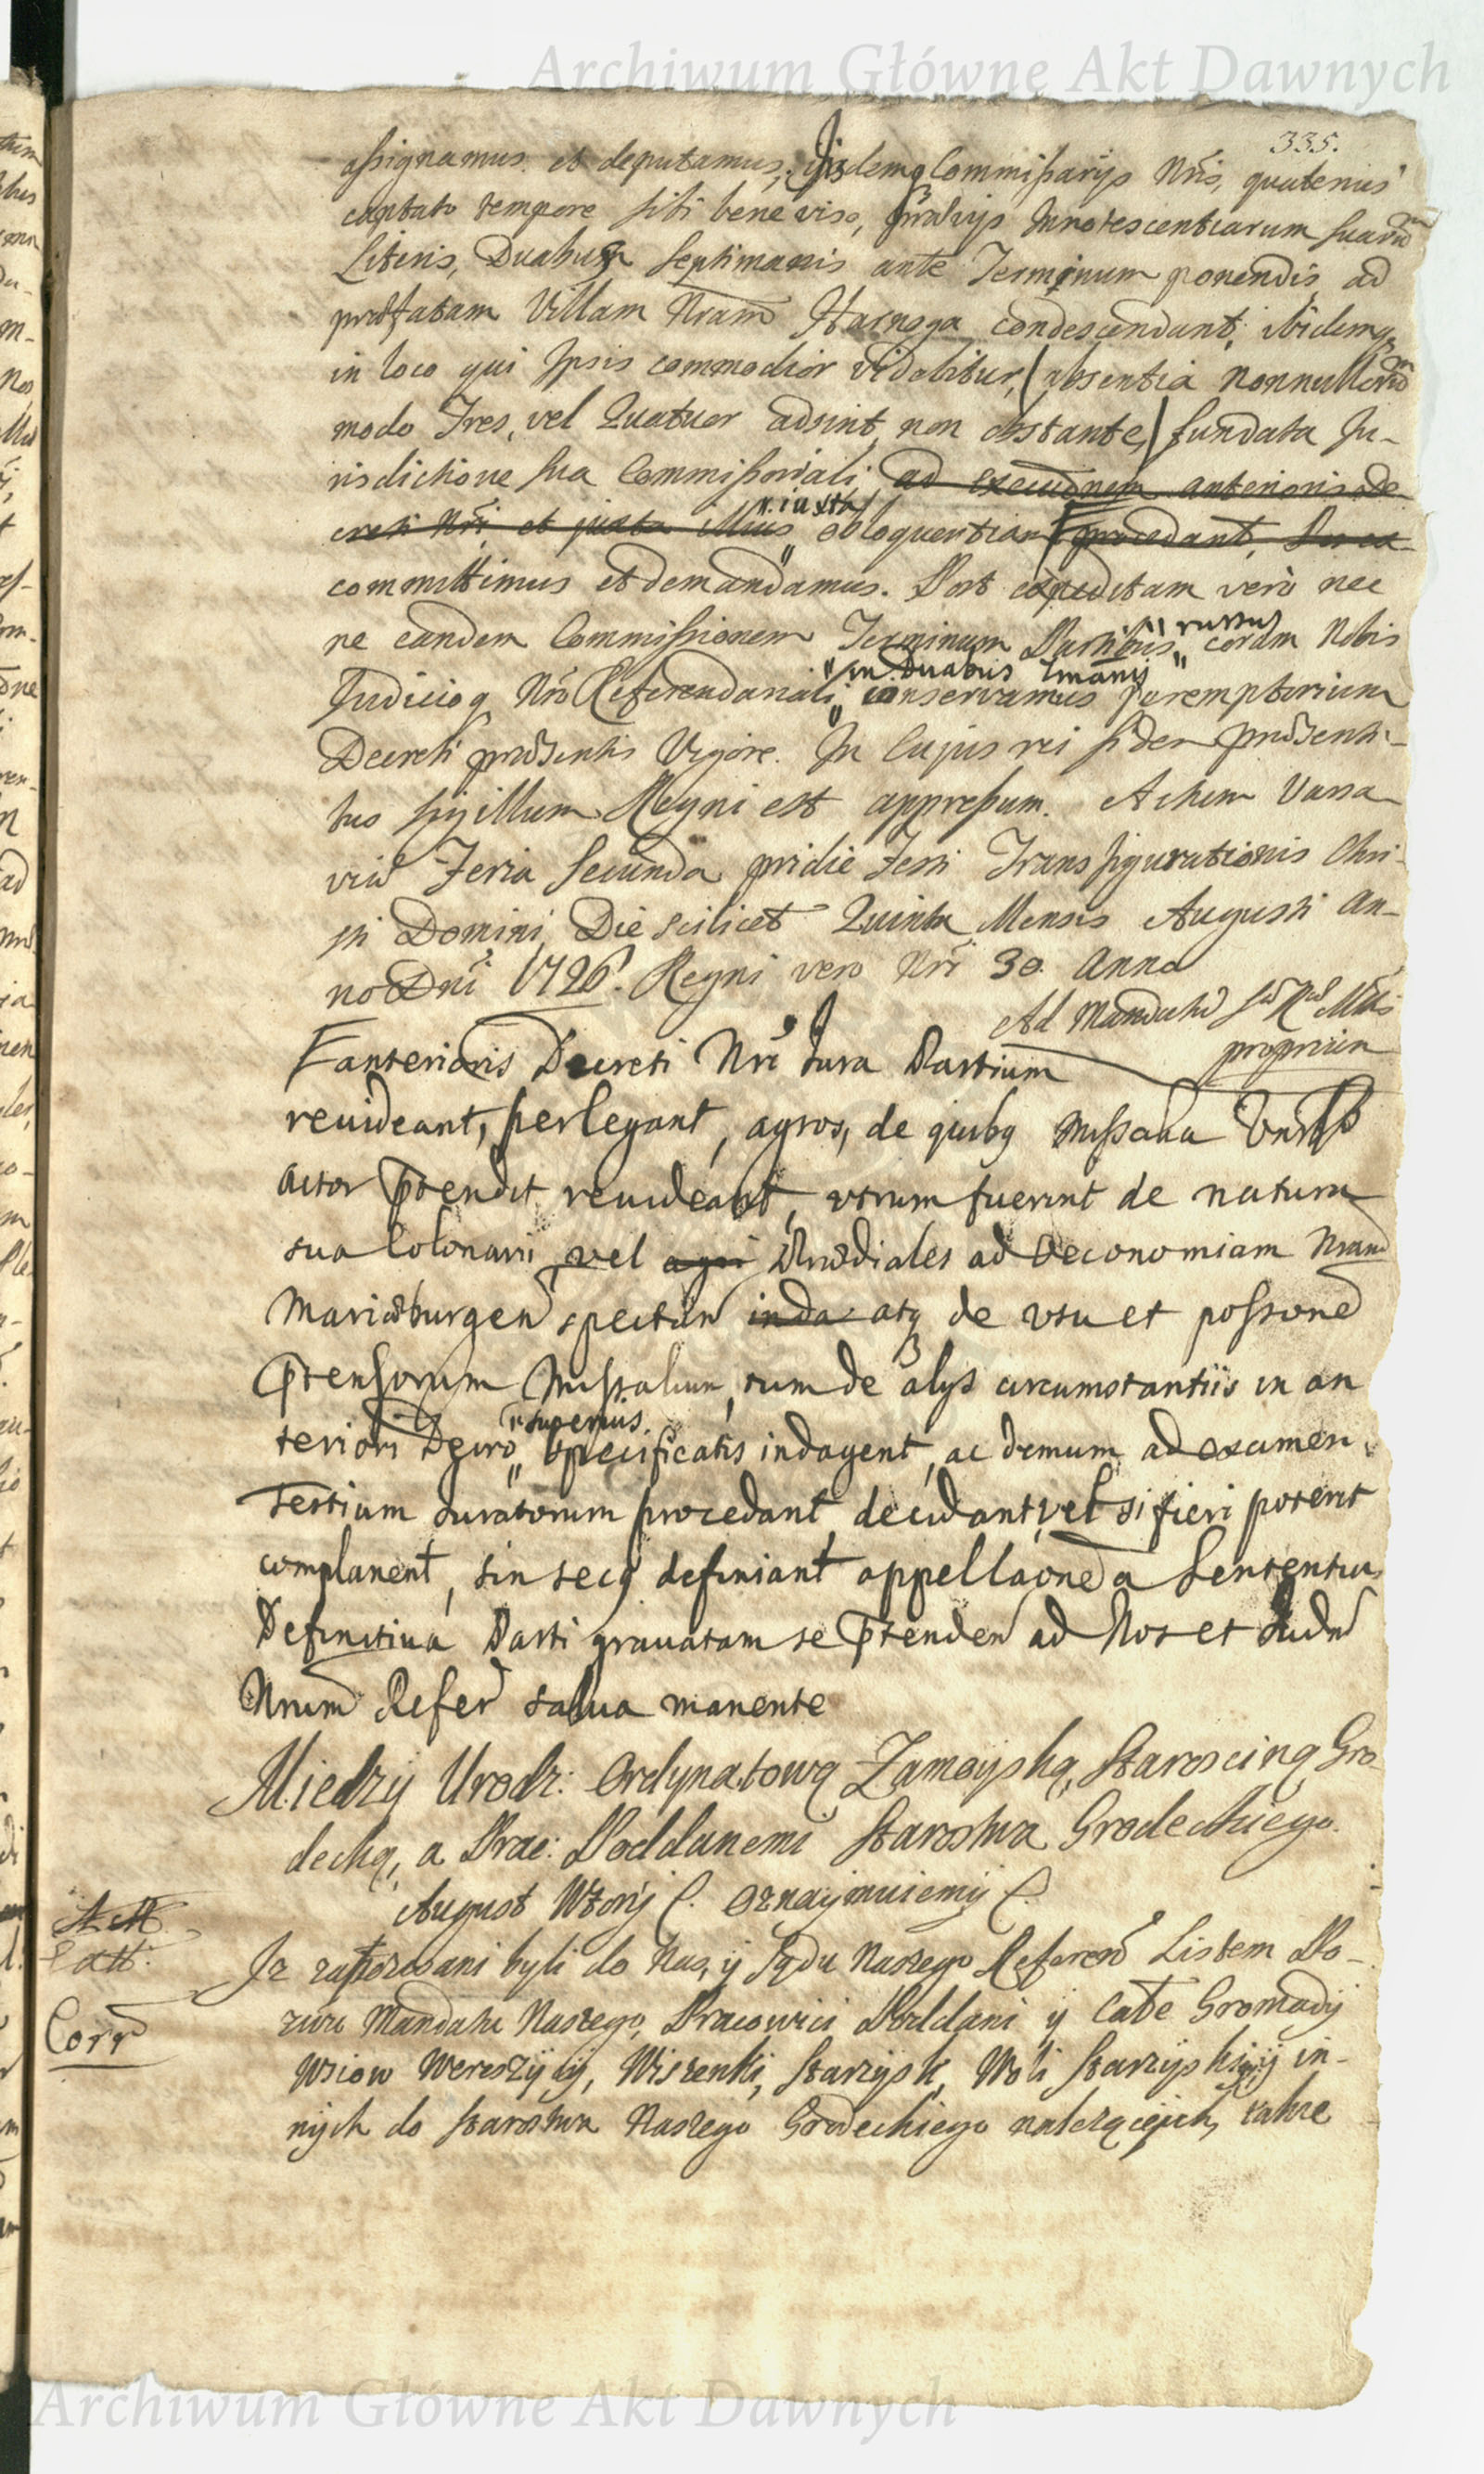 Archiwum Główne Akt Dawnych
335.
assignamus et deputamus, Iisdemq Commissarijs Nris, quatenus
captato tempore sibi bene viso, prævijs Innotescentiarum suarū
Literis, Duabus Septimanis ante Terminum ponendis ad
præfatam Villam Nram Starnoga condescendant, ibidemq
in loco qui Ipsis commodior videbitur, /absentia nonnullorū
modo Tres, vel Quatuor adsint, non obstante/ fundata Ju-
risdictione sua Commissoriali, ad executionem anterioris De-
creti Nri, et juxta illius
iuxta
obloquentiam procedant,
committimus et demandamus. Post expeditam vero nec
ne eandem Commissionem Terminum Partibus coram Nobis
rursus
in Duabus Tmanis
Judicioq Nro Referendariali, conservamus peremptorium
Decreti præsentis Vigore. In Cujus rei fidem præsenti-
bus sigillum Regni est appressum. Actum Varsa-
viæ Feria Secunda pridie Festi Transfigurationis Chri-
sti Domini, Die scilicet Quinta Mensis Augusti An-
no Dni 1726. Regni vero Nri 30. Anno
Ad Mandatū Sæ Ræ Mtis
proprium
anterioris Decreti Nri Jura Partium
revideant, perlegant, agros, de quibq Missalia
Actor prtendit revideant, utrum fuerint de natura
sua Colonarii, vel agri Prædiales ad Oeconomiam Nram
Mariæburgen spectan inda atq de usu et possone
prtensorum Missalium, tum de alijs circumstantiis in an
teriori Decro specificatis indagent, ac demum ad examen
superius
Testium Juratorum procedant, decidant, vel si fieri poterit
complanent, sin secq definiant appellaone a Sententia
Definitiva Parti gravatam se prtenden ad Nos et Judm
Nrum Refer salva manente
Między Urodz: Ordynatową Zamoyską, Starościną Gro-
decką, a Prac: Poddanemi Starostwa Grodeckiego.
August Wtory C. Oznaymuiemy C.
Iz zapozwani byli do Nas, y Sądu Naszego Referen Listem Po-
zwu Mandatu Naszego, Pracowici Poddani y Całe Gromady
Wsiow Wereszycy, Wiszenki, Starzysk, Woli Starzyskiey, y in-
nych do Starostwa Naszego Grodeckiego należących, także
Corr
Archiwum Główne Akt Dawnych